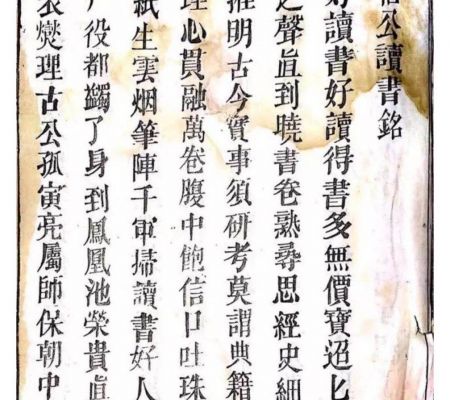 公讀書銘
好讀書好讀得書多無價寶迢匕
之聲直到曉書卷熟尋思經史細
推明古今實事須研考莫謂典籍
理心貫融萬卷腹中飽信口吐珠
紙生雲烟筆陣千軍掃讀書好人
役都蠲了身到鳳凰池榮貴眞
燮理古公孤寅亮屬師保朝中